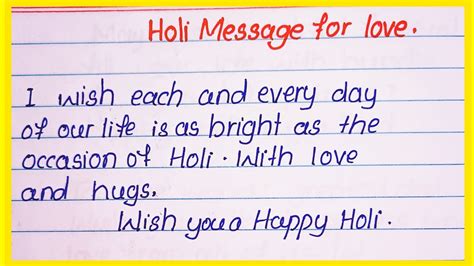 Holi Message for love.
I wish each and every day
of our life is as bright as the
occasion of Holi. With love
and hugs.
Wish you a Happy Holi.